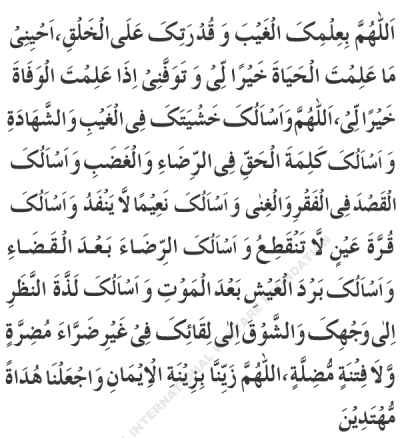 اَللّٰهُمَّ بِعِلْمِکَ الْغَیْبَ وَ قُدْرَتِکَ عَلَی الْخَلْقِ، اَحْیِنِیْ
مَا عَلِمْتَ الْحَیَاةَ خَیْرًا لِّیْ وَ تَوَفَّنِیْ اِذَا عَلِمْتَ الْوَفَاةَ
خَیْرًا لِّیْ، اَللّٰهُمَّ وَ اَسْاَلُکَ خَشْیَتَکَ فِی الْغَیْبِ وَ الشَّهَادَةِ
وَ اَسْاَلُکَ کَلِمَةَ الْحَقِّ فِی الرِّضَاءِ وَ الْغَضَبِ وَ اَسْاَلُکَ
الْقَصْدَ فِی الْفَقْرِ وَ الْغِنٰی وَ اَسْاَلُکَ نَعِیْمًا لَّا یَنْفَدُ وَ اَسْاَلُکَ
قُرَّةَ عَیْنٍ لَّا تَنْقَطِعُ وَ اَسْاَلُکَ الرِّضَاءَ بَعْدَ الْقَضَاءِ
وَ اَسْاَلُکَ بَرْدَ الْعَیْشِ بَعْدَ الْمَوْتِ وَ اَسْاَلُکَ لَذَّةَ النَّظَرِ
اِلٰی وَجْهِکَ وَ الشَّوْقَ اِلٰی لِقَائِکَ فِیْ غَیْرِ ضَرَّاءَ مُضِرَّةٍ
وَّ لَا فِتْنَةٍ مُّضِلَّةٍ، اَللّٰهُمَّ زَیِّنَّا بِزِیْنَةِ الْاِیْمَانِ وَ اجْعَلْنَا هُدَاةً
مُّهْتَدِیْنَ